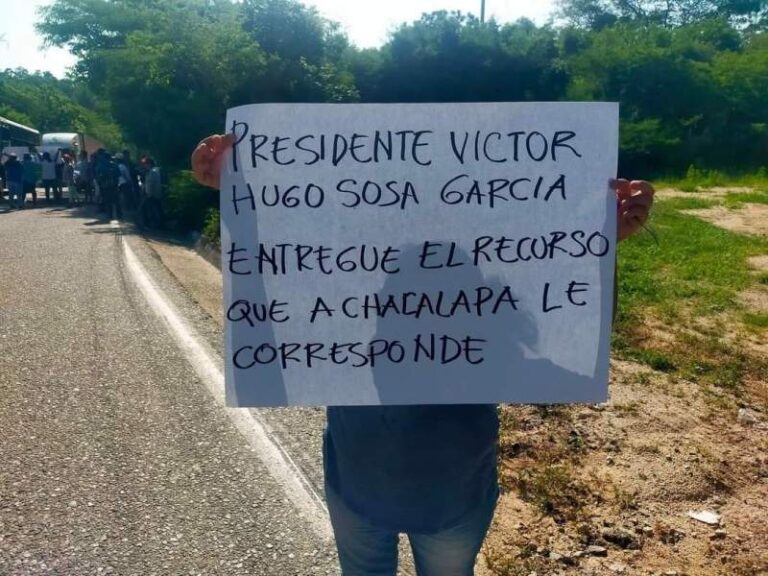 PRESIDENTE VICTOR
HUGO SOSA GARCIA
ENTREGUE EL RECURSO
QUE A CHACALAPA LE
CORRESPONDE